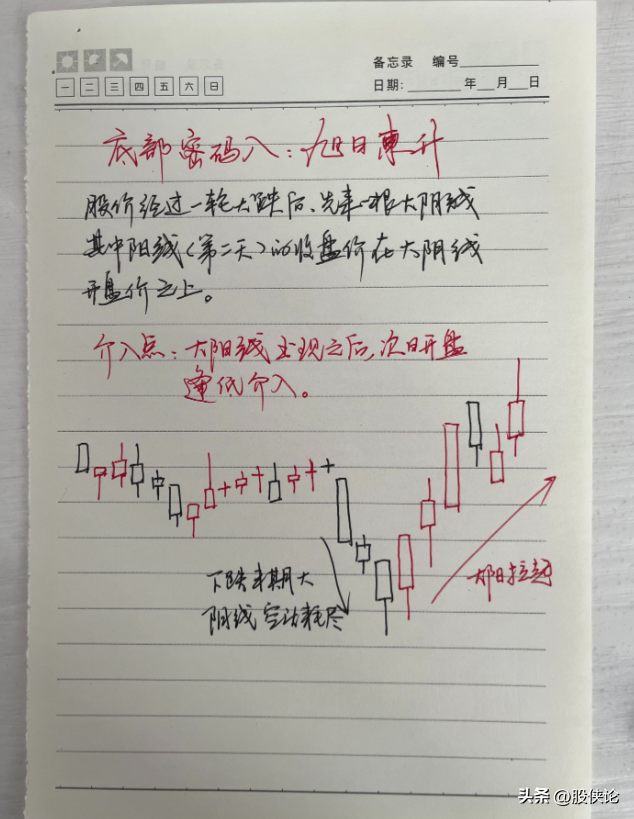 备忘录 编号
一 二 三 四 五 六 日
日期: 年 月 日
底部密码八:旭日東升
股价经过一轮大跌后、先来一根大阴线
其中阳线(第二天)的收盘价在大阴线
开盘价之上。
介入点:大阳线出现之后,次日开盘
逢低介入。
下跌末期大
阴线空头耗尽
大阳拉起
头条 @股侠论